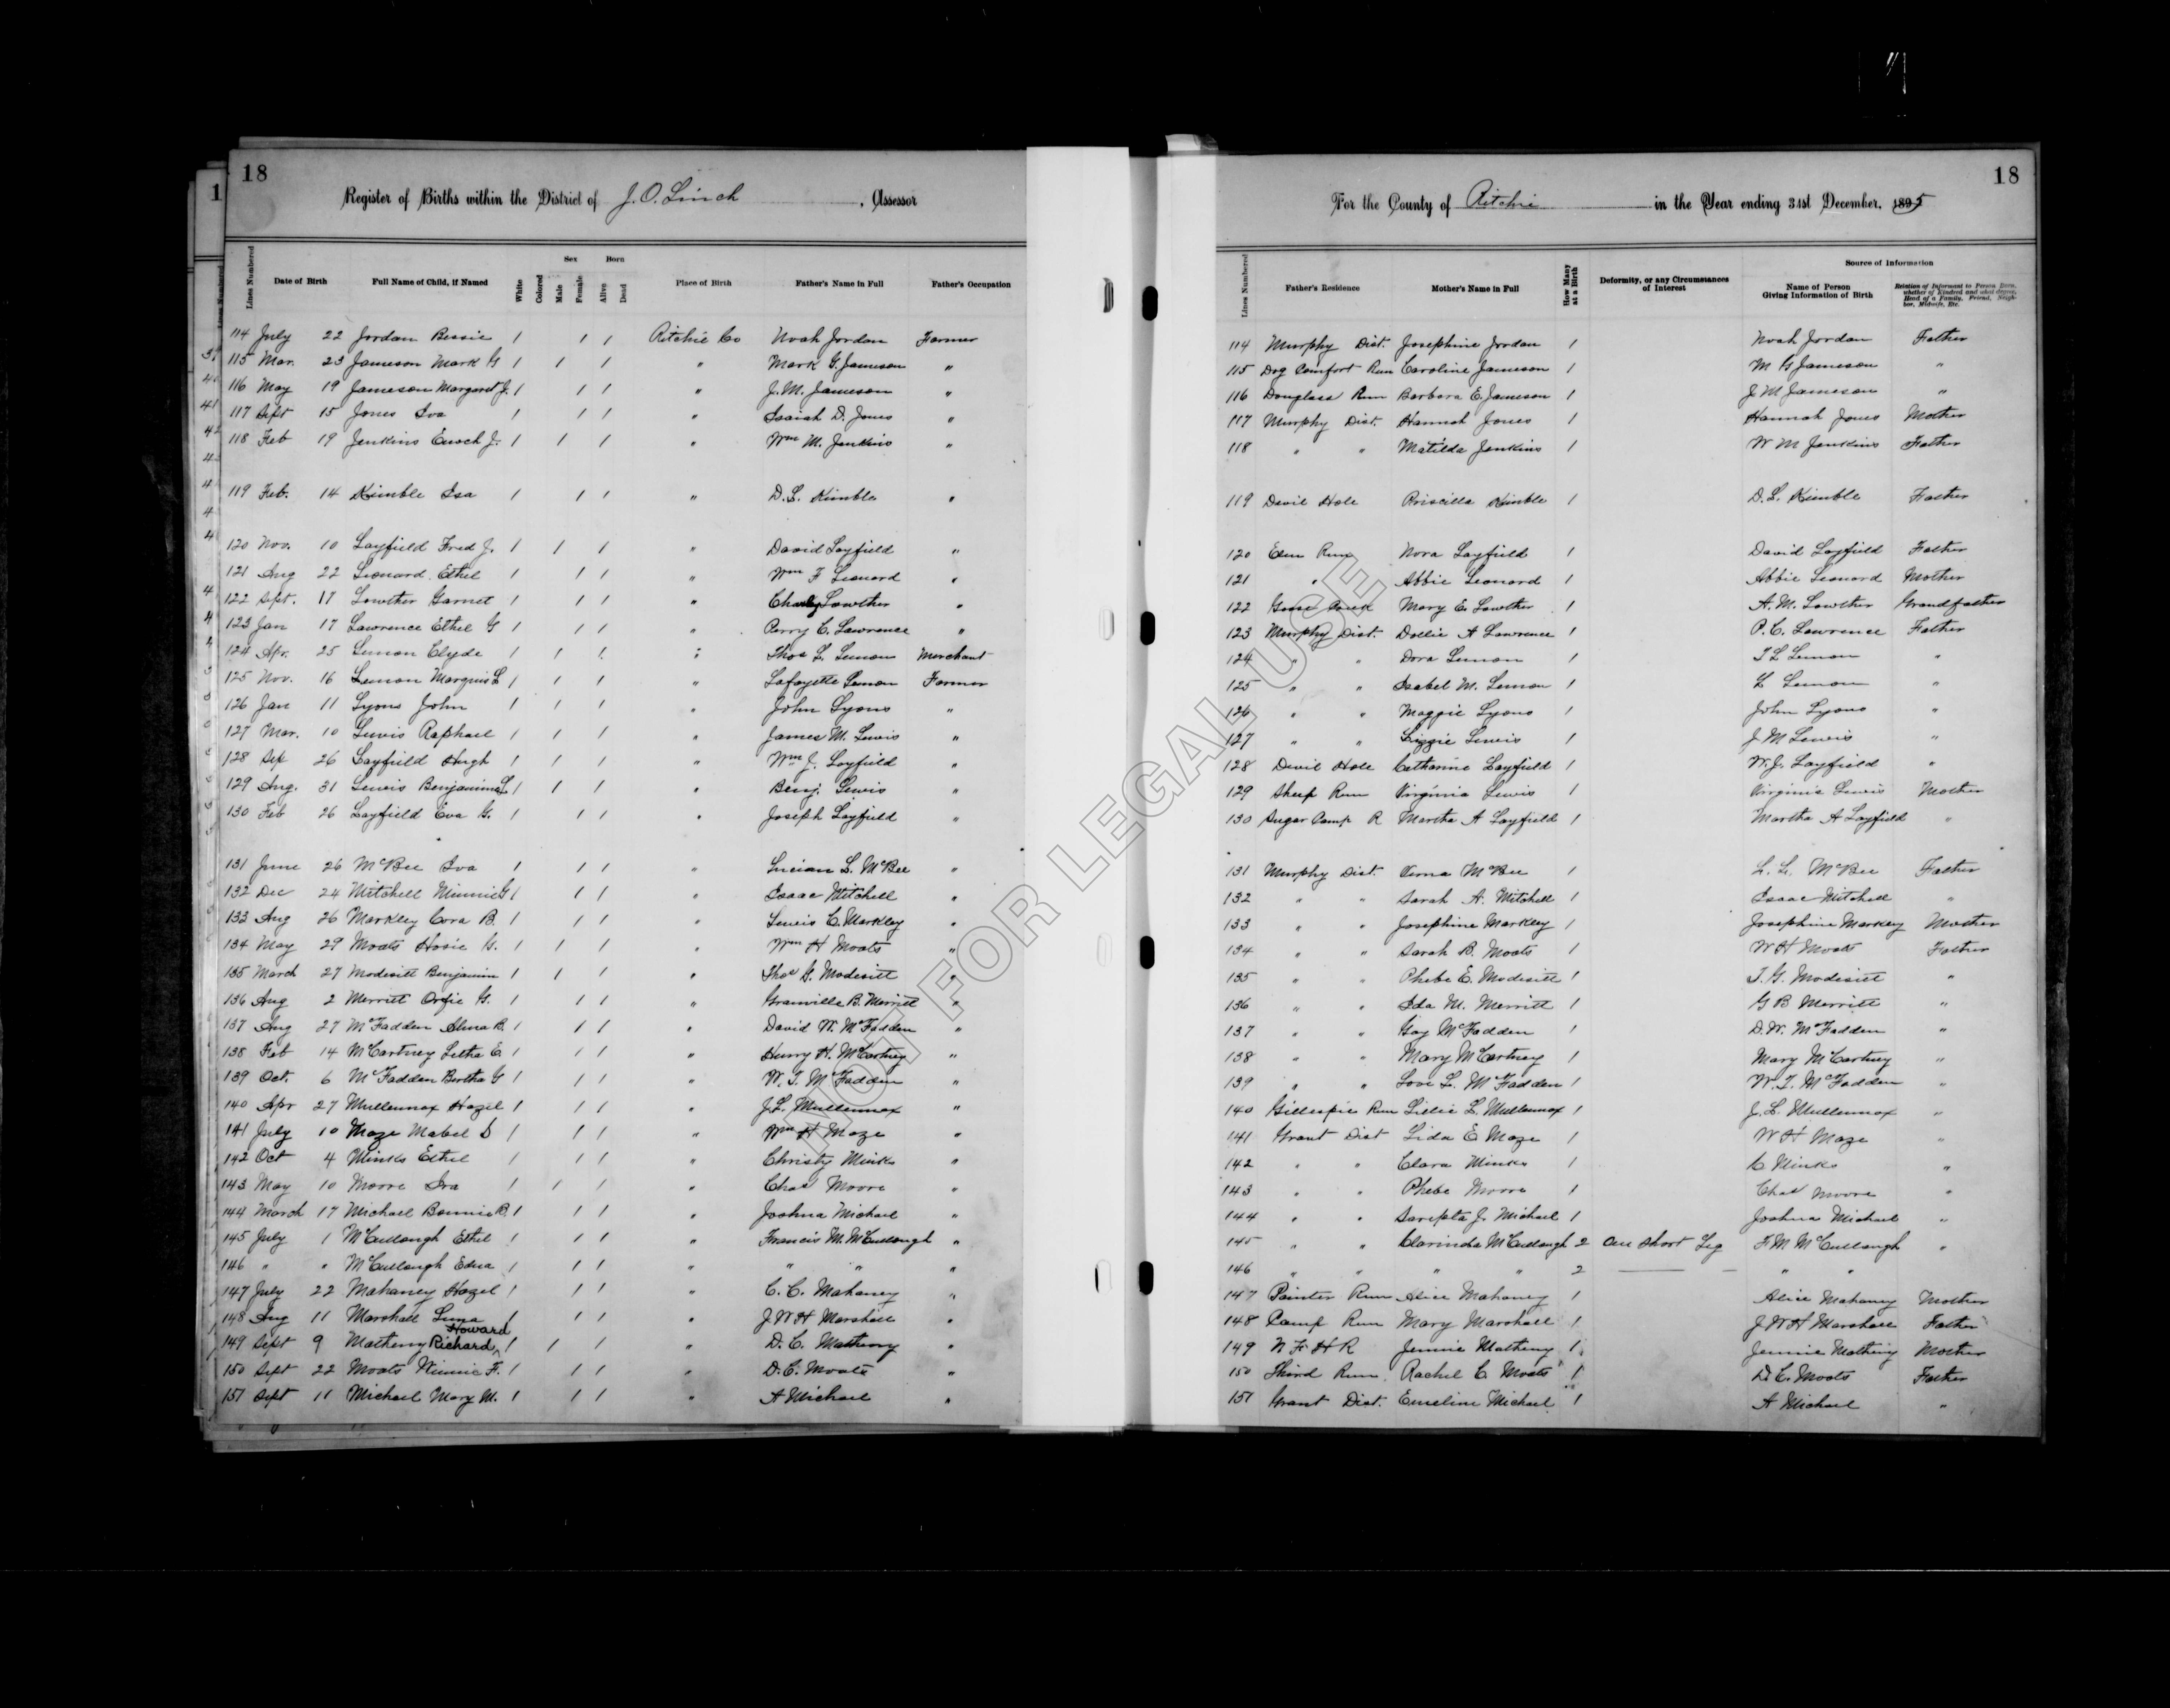 18
Register of Births within the District of J. O. Linch, Assessor
Lines Numbered
Date of Birth
Full Name of Child, if Named
White
Colored
Sex
Male
Female
Born
Alive
Dead
Place of Birth
Father's Name in Full
Father's Occupation
114 July 22 Jordan Bessie 1 1 1 Ritchie Co Noah Jordan Farmer
115 Mar. 23 Jameson Mark G 1 1 1 " Mark G. Jameson "
116 May 19 Jameson Margaret J. 1 1 1 " J. M. Jameson "
117 Sept 15 Jones Iva 1 1 1 " Isaiah D. Jones "
118 Feb 19 Jenkins Enoch J. 1 1 1 " Wm M. Jenkins "
119 Feb. 14 Kimble Isa 1 1 1 " D. L. Kimble "
120 Nov. 10 Layfield Fred J. 1 1 1 " David Layfield "
121 Aug 22 Leonard Ethel 1 1 1 " Wm F Leonard "
122 Sept. 17 Lowther Garnet 1 1 1 " Charley Lowther "
123 Jan 17 Lawrence Ethel G 1 1 1 " Perry C. Lawrence "
124 Apr. 25 Lemon Clyde 1 1 1 " Thos L. Lemon Merchant
125 Nov. 16 Lemon Marquis L 1 1 1 " Lafayette Lemon Farmer
126 Jan 11 Lyons John 1 1 1 " John Lyons "
127 Mar. 10 Lewis Raphael 1 1 1 " James M. Lewis "
128 Sep 26 Layfield Hugh 1 1 1 " Wm J. Layfield "
129 Aug. 31 Lewis Benjamine L 1 1 1 " Benj. Lewis "
130 Feb 26 Layfield Eva G. 1 1 1 " Joseph Layfield "
131 June 26 McBee Iva 1 1 1 " Lucian L. McBee "
132 Dec 24 Mitchell Minnie G 1 1 1 " Isaac Mitchell "
133 Aug 26 Markley Cora B. 1 1 1 " Lewis C. Markley "
134 May 29 Moats Hosie G. 1 1 1 " Wm H Moats "
135 March 27 Modesitt Benjamin 1 1 1 " Thos G. Modesitt "
136 Aug 2 Merritt Orfie G. 1 1 1 " Granville B. Merritt "
137 Aug 27 McFadden Alma B. 1 1 1 " David W. McFadden "
138 Feb 14 McCartney Letha E. 1 1 1 " Henry H. McCartney "
139 Oct. 6 McFadden Bertha G 1 1 1 " W. T. McFadden "
140 Apr 27 Mullennax Hazel 1 1 1 " J. L. Mullennax "
141 July 10 Maze Mabel D 1 1 1 " Wm H Maze "
142 Oct 4 Minks Ethel 1 1 1 " Christy Minks "
143 May 10 Moore Ira 1 1 1 " Chas Moore "
144 March 17 Michael Bonnie B. 1 1 1 " Joshua Michael "
145 July 1 McCullough Ethel 1 1 1 " Francis M. McCullough "
146 " " McCullough Edna 1 1 1 " " " "
147 July 22 Mahaney Hazel 1 1 1 " C. C. Mahaney "
148 Aug 11 Marshall Luna 1 1 1 " J W H Marshall "
Howard
149 Sept 9 Matheny Richard 1 1 1 " D. C. Matheny "
150 Sept 22 Moats Winnie F. 1 1 1 " D. C. Moats "
151 Sept 11 Michael Mary M. 1 1 1 " A Michael "
18
For the County of Ritchie in the Year ending 31st December, 1895
Lines Numbered
Father's Residence
Mother's Name in Full
How Many at a Birth
Deformity, or any Circumstances of Interest
Source of Information
Name of Person Giving Information of Birth
Relation of Informant to Person Born, whether of Kindred and what degree, Head of a Family, Friend, Neighbor, Midwife, Etc.
114 Murphy Dist. Josephine Jordan 1 Noah Jordan Father
115 Dog Comfort Run Caroline Jameson 1 M G Jameson "
116 Douglass Run Barbara E. Jameson 1 J M Jameson "
117 Murphy Dist. Hannah Jones 1 Hannah Jones Mother
118 " " Matilda Jenkins 1 W M Jenkins Father
119 Devil Hole Priscilla Kimble 1 D. L. Kimble Father
120 Elm Run Nora Layfield 1 David Layfield Father
121 " Abbie Leonard 1 Abbie Leonard Mother
122 Goose Creek Mary E. Lowther 1 A. M. Lowther Grandfather
123 Murphy Dist. Dollie A Lawrence 1 P. C. Lawrence Father
124 " " Dora Lemon 1 T L Lemon "
125 " " Isabel M. Lemon 1 L Lemon "
126 " " Maggie Lyons 1 John Lyons "
127 " " Lizzie Lewis 1 J M Lewis "
128 Devil Hole Catharine Layfield 1 W. J. Layfield "
129 Sheep Run Virginia Lewis 1 Virginia Lewis Mother
130 Sugar Camp R Martha A Layfield 1 Martha A Layfield "
131 Murphy Dist. Verna McBee 1 L. L. McBee Father
132 " " Sarah A. Mitchell 1 Isaac Mitchell "
133 " " Josephine Markley 1 Josephine Markley Mother
134 " " Sarah B. Moats 1 W H Moats Father
135 " " Phebe E. Modesitt 1 T. G. Modesitt "
136 " " Ida M. Merritt 1 G B Merritt "
137 " " Gay McFadden 1 D. W. McFadden "
138 " " Mary McCartney 1 Mary McCartney "
139 " " Love L. McFadden 1 W. T. McFadden "
140 Gillespie Run Lillie L. Mullennax 1 J. L. Mullennax "
141 Grant Dist Lida E Maze 1 W H Maze "
142 " " Clara Minks 1 C Minks "
143 " " Phebe Moore 1 Chas Moore "
144 " " Sarepta J. Michael 1 Joshua Michael "
145 " " Clarinda McCullough 2 One Short Leg F. M McCullough "
146 " " " " 2 " "
147 Painter Run Alice Mahaney 1 Alice Mahaney Mother
148 Camp Run Mary Marshall 1 J W H Marshall Father
149 N F H R Jennie Matheny 1 Jennie Matheny Mother
150 Third Run Rachel C. Moats 1 D. C. Moats Father
151 Grant Dist. Emeline Michael 1 A Michael "
NOT FOR LEGAL USE